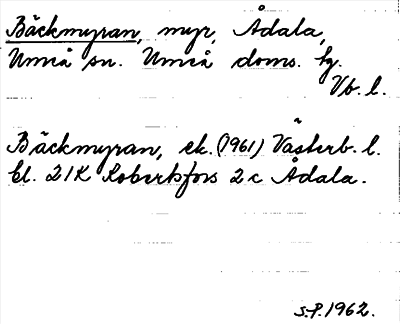 Bäckmyran, myr, Ådala,
Umeå sn. Umeå doms. hg.
Vb. l.
Bäckmyran, ek. (1961) Västerb. l.
bl. 21K Robertsfors 2c Ådala.
S.P. 1962.